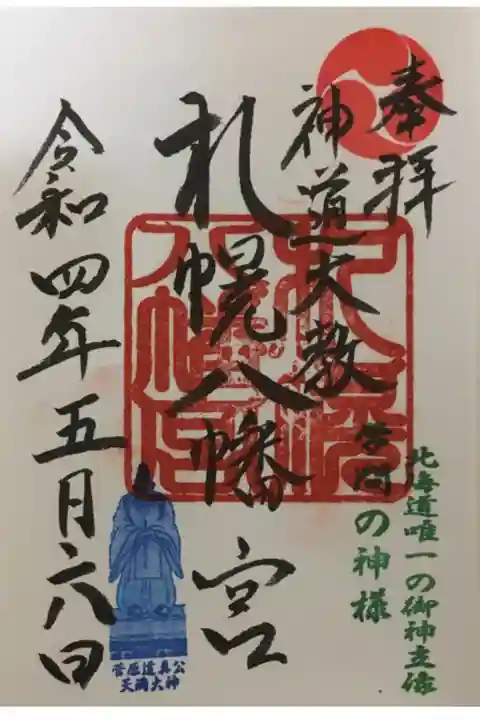 奉拝
神道大教
札幌八幡宮
令和四年五月六日
北海道唯一の御神立像
学問の神様
菅原道真公
天満大神